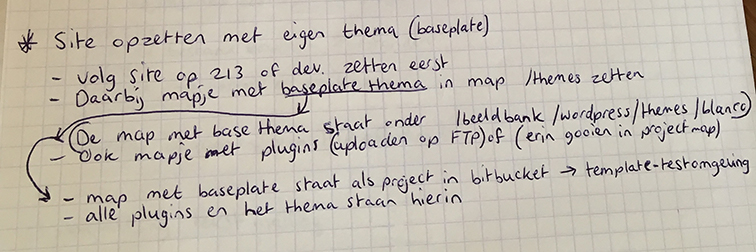 * Site opzetten met eigen thema (baseplate)
- volg site op 213 of dev. zetten eerst
- Daarbij mapje met baseplate thema in map /themes zetten
(De map met base thema staat onder /beeldbank/wordpress/themes/blanco)
- Ook mapje met plugins (uploaden op FTP) of (erin gooien in projectmap)
- map met baseplate staat als project in bitbucket → template-testomgeving
- alle plugins en het thema staan hierin